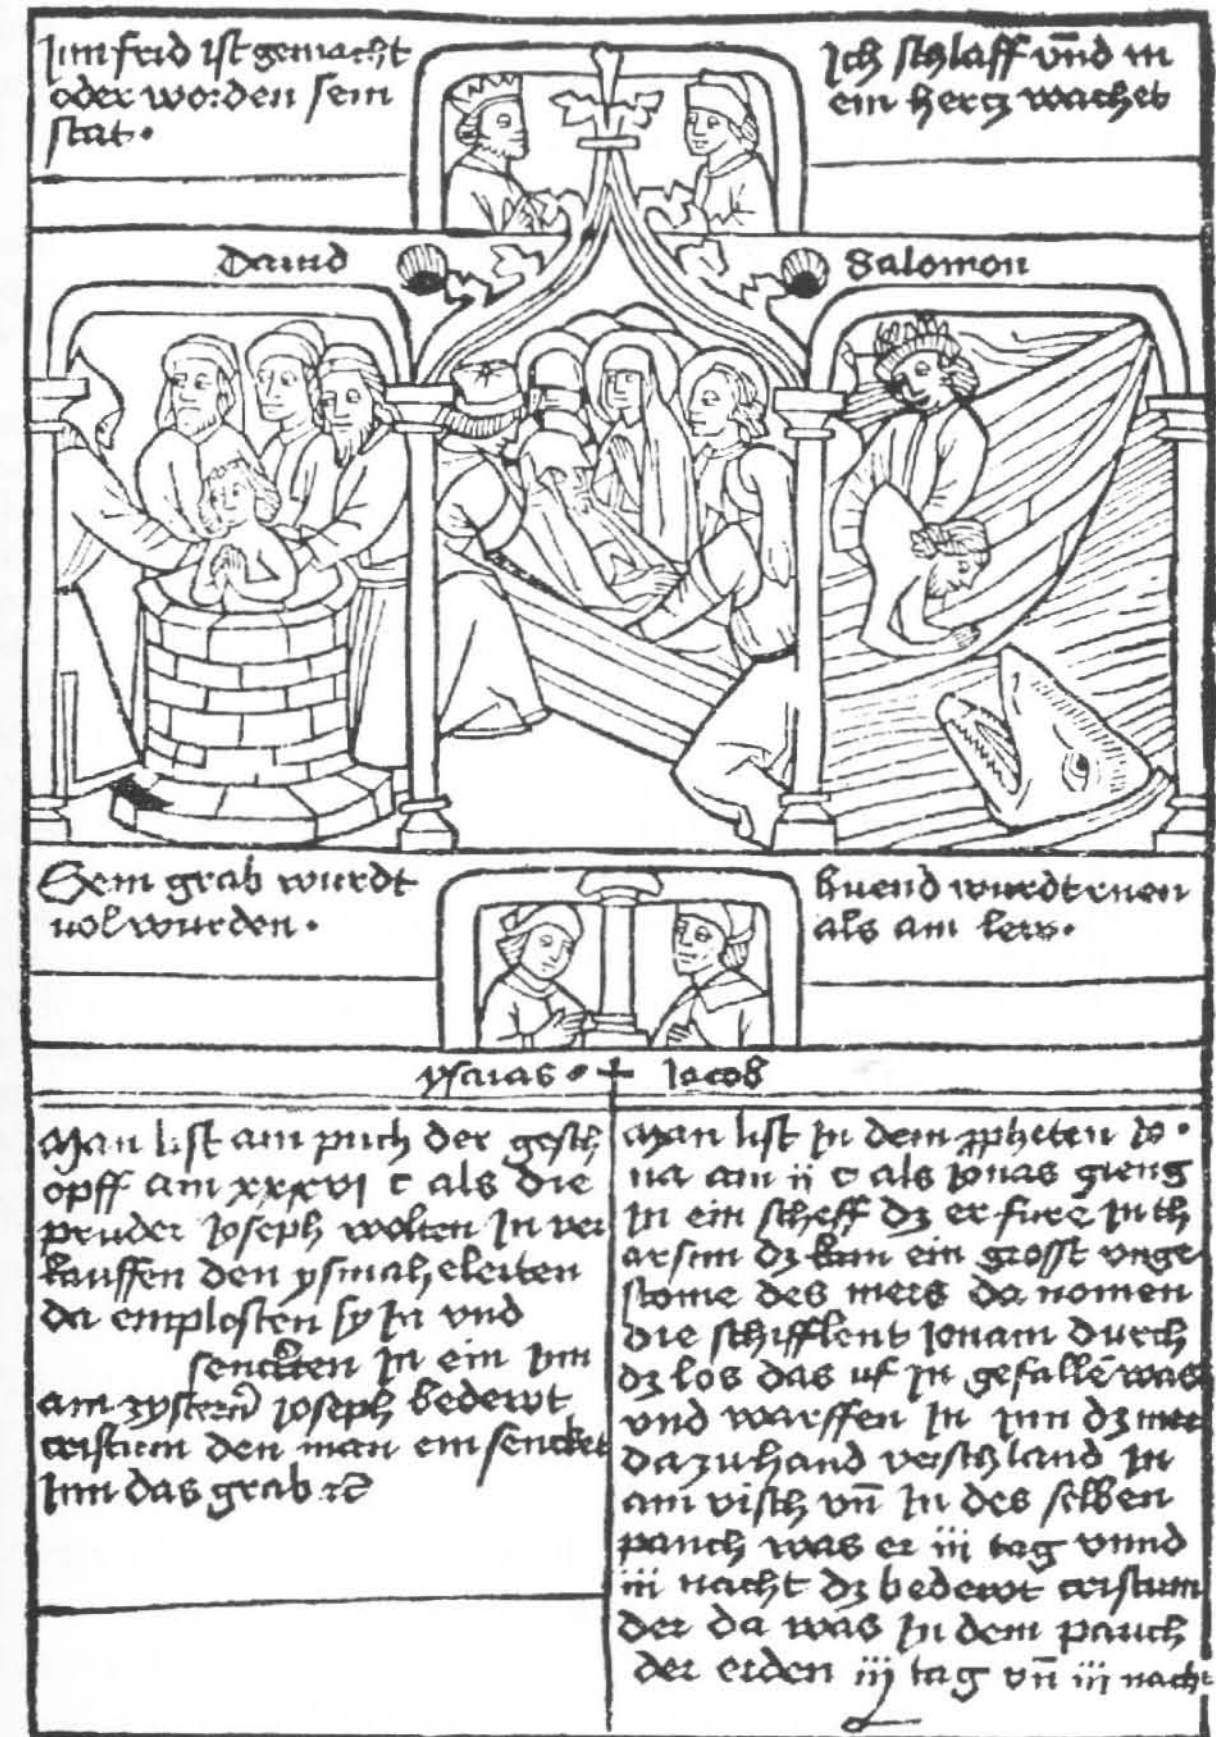 Inn frid ist gemacht
oder worden sein
stat.
Ich schlaff vn̄d m
ein hertz wachet
Dauid
Salomon
Sein grab wurdt
vol wurden.
Ruend wurdt ruen
als am lew.
ysaias. + Jacob
Man list am puch der gesch
opff am xxxvi c als die
pruder Joseph wolten In ver
kauffen den ysmaheleiten
da emplosten sy In vnd
senckten In ein
am Joseph bedewt
cristum den man ein sencket
Inn das grab ꝛc̄
Man list In dem ppheten Jo.
na am ii c als Jonas gieng
In ein scheff dz er fure In th
arsim dz kam ein grosst vnge
stome des mers da nomen
die schifflent Jonam durch
dz los das uf In gefallē was
vnd warffen In Inn dz mer
da zuhand verschland In
am visch vn̄ In des selben
pauch was er iii tag vnnd
iii nacht dz bedewt cristum
der da was In dem pauch
der erden iij tag vn̄ iii nacht